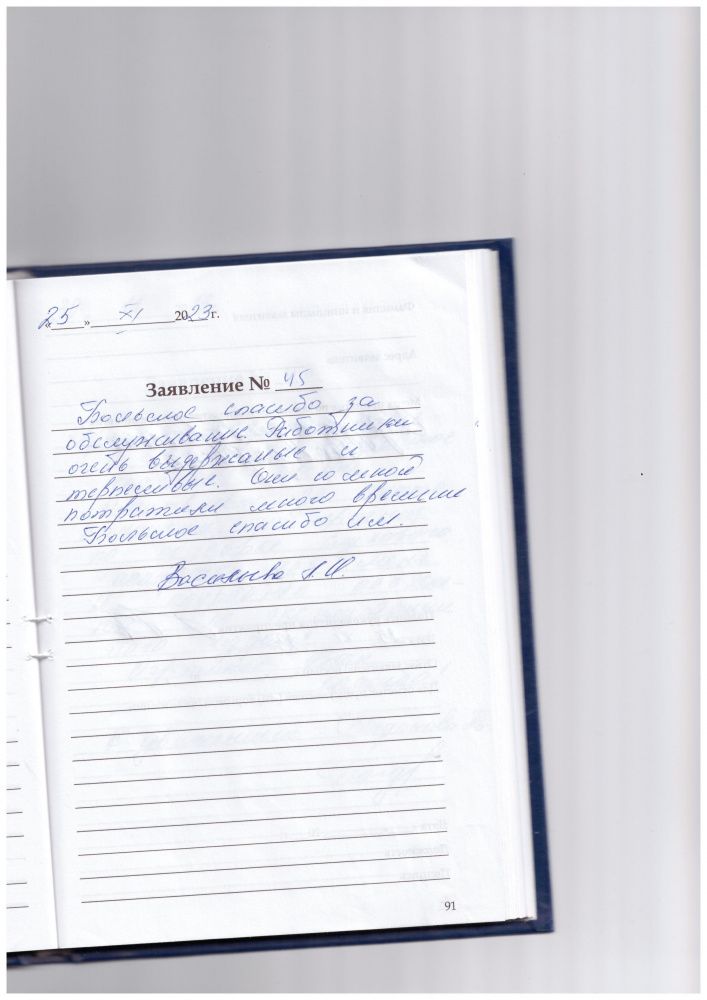 «25» XI 2023г.
Заявление № 45
Большое спасибо за
обслуживание. Работники
очень выдержаные и
терпеливые. Они со мной
потратили много времени
Большое спасибо им.
Васильева А.И.
91